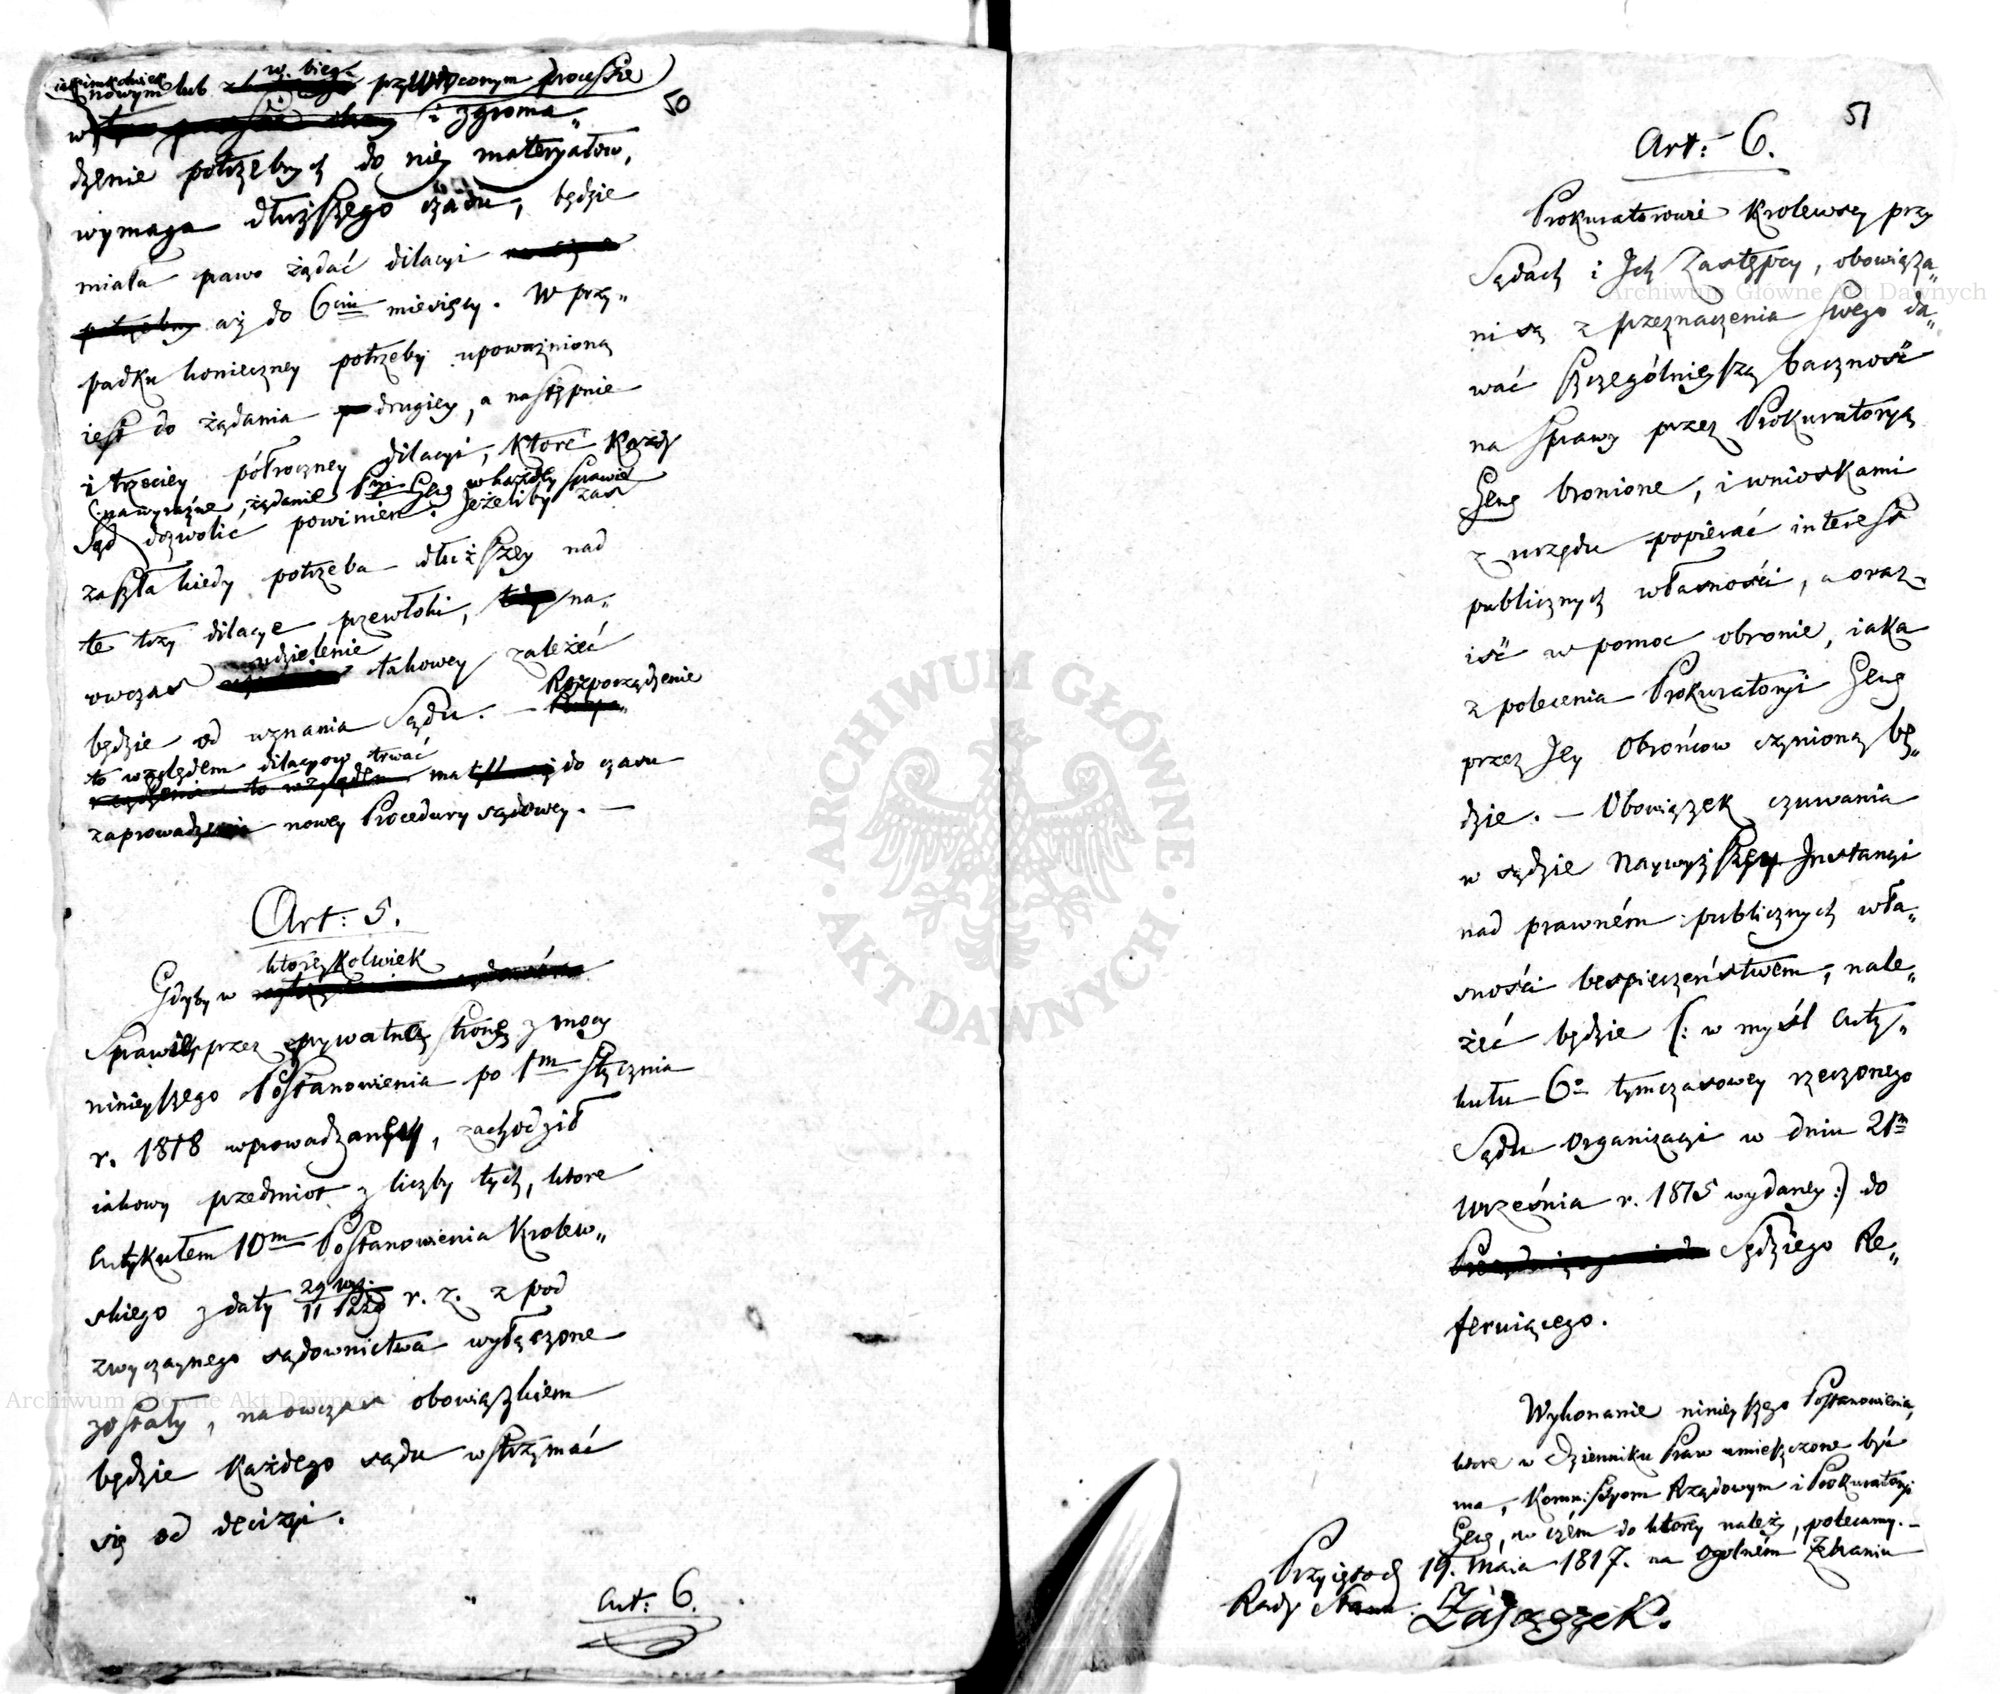 50
iakimkolwiek w. bieg.
nowym lub przywróconym processie
w i zgroma„
dzenie potrzebnych do niey materyałow,
wymaga dłuższego czasu, będzie
miała prawo żądać dilacyi
potrzebney aż do 6ciu miesięcy. W przy„
padku konieczney potrzeby upoważnioną
iest do żądania drugiey, a następnie
i trzeciey półroczney dilacyi, które każdy
żądanie Pryi Glney w każdey sprawie
Sąd dozwolić powinien. Jeżeliby zaś
zaszła kiedy potrzeba dłuższey nad
te trzy dilacye przewłoki, na„
udzielenie
owczas takowey zależeć
będzie od uznania Sądu. — Rozporządzenie
to względem dilacyow trwać
rządzenie to względem ma do czasu
zaprowadzenia nowey Procedury sądowey. —
Art: 5.
któreykolwiek
Gdyby w
Sprawie przez prywatną stronę z mocy
ninieyszego Postanowienia po 1m Stycznia
r. 1818 wprowadzaney, zachodził
iakowy przedmiot z liczby tych, ktore
Artykułem 10m Postanowienia Krolew„
skiego z daty 29 wrz. r. z. z pod
11 Paźd
zwyczaynego sądownictwa wyłączone
zostały, naowczas obowiązkiem
będzie każdego sądu wstrzymać
się od decizyi.
Art: 6.
51
Art: 6.
Prokuratorowie Krolewscy przy
Sądach i Jch Zastępcy, obowiąza„
ni są z przeznaczenia swego da„
wać szczególnieyszą baczność
na sprawy przez Prokuratoryą
Glną bronione, i wnioskami
z urzędu popierać interess
publicznych własności, a oraz
iść w pomoc obronie, iaka
z polecenia Prokuratoryi Glney
przez Jey Obrońcow czynioną bę„
dzie. — Obowiązek czuwania
w sądzie Naywyższey Jnstancyi
nad prawném publicznych wła„
sności bespieczeństwem, nale„
żeć będzie (: w myśl Arty„
kułu 6o tymczasowey rzeczonego
Sądu Organizacyi w dniu 21m
Września r. 1815 wydaney:) do
Sędziego Re„
feruiącego.
Wykonanie ninieyszego Postanowienia,
ktore w Dzienniku Praw umieszczone być
ma, Kommissyom Rządowym i Prokuratoryi
Glney, w czém do ktorey należy, polecamy. —
Przyięto d. 19. Maia 1817. na Ogolném Zebraniu
Rady Stanu. Zaiączek.
ARCHIWUM GŁÓWNE AKT DAWNYCH
Archiwum Główne Akt Dawnych
Archiwum Główne Akt Dawnych